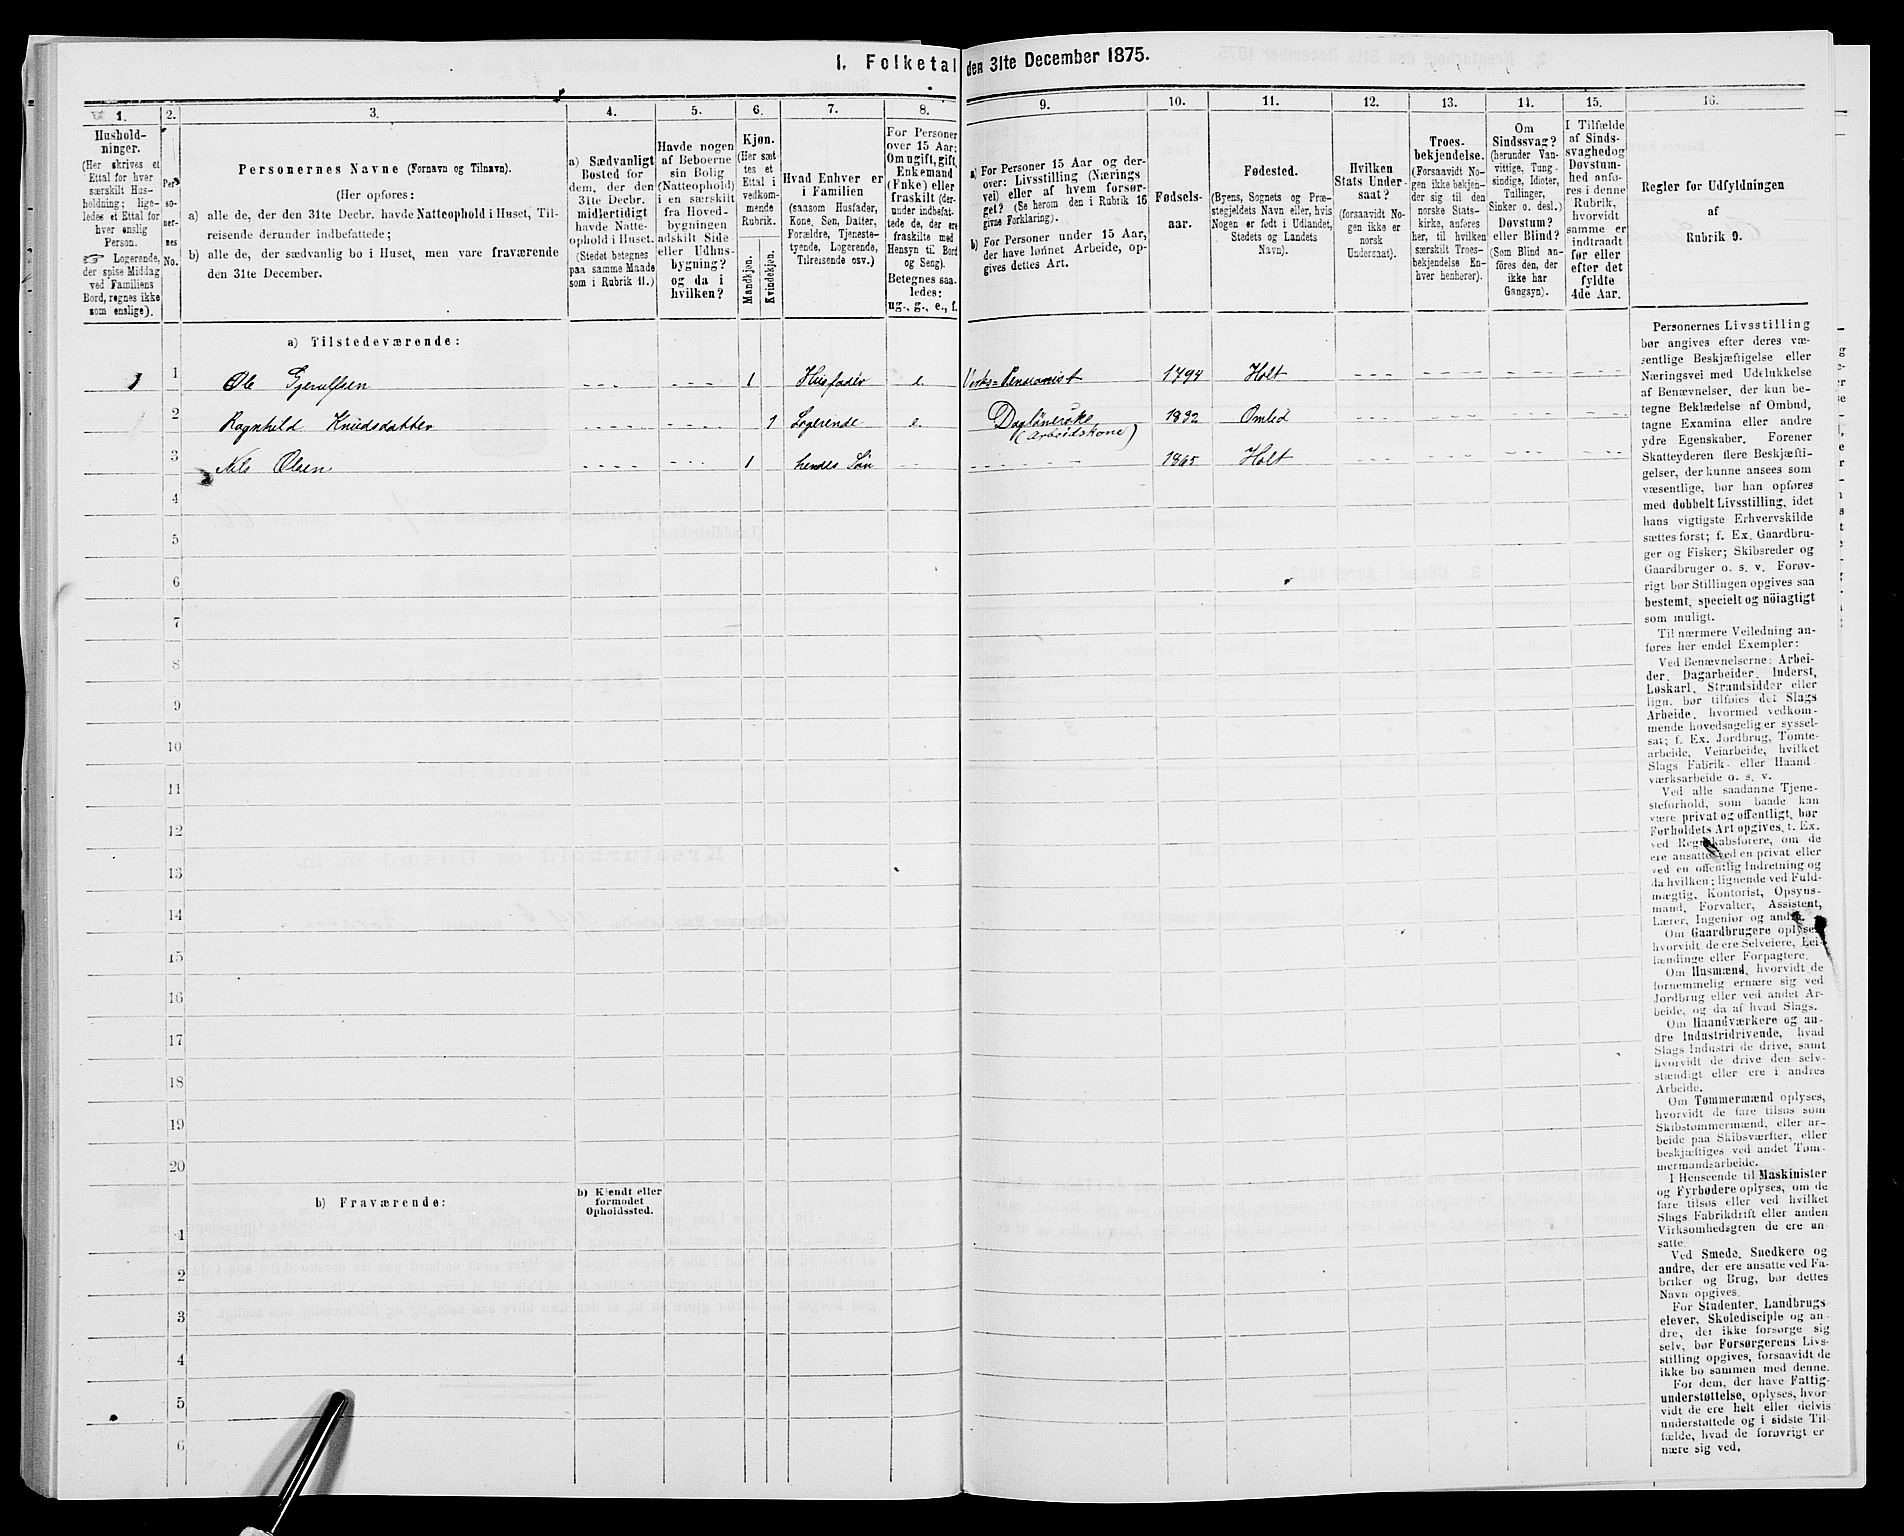 1. Folketal den 31te December 1875.
1. 2. 3. 4. 5. 6. 7. 8. 9. 10. 11. 12. 13. 14. 15. 16.
Hushold-
ninger.
(Her skrives et
Ettal for hver
særskilt Hus-
holdning; lige-
ledes et Ettal for
hver enslig
Person.
☞ Logerende,
der spise Middag
ved Familiens
Bord, regnes ikke
som enslige).
Per-
so-
ner-
nes
No.
Personernes Navne (Fornavn og Tilnavn).
(Her opføres:
a) alle de, der den 31te Decbr. havde Natteophold i Huset, Til-
reisende derunder indbefattede;
b) alle de, der sædvanlig bo i Huset, men vare fraværende
den 31te December.
a) Sædvanligt
Bosted for
dem, der den
31te Decbr.
midlertidigt
havde Natte-
ophold i Huset.
(Stedet betegnes
paa samme Maade
som i Rubrik 11.)
Havde nogen
af Beboerne
sin Bolig
(Natteophold)
i en særskilt
fra Hoved-
bygningen
adskilt Side
eller Udhus-
bygning?
og da i
hvilken?
Kjøn.
(Her sæt-
tes et
Ettal i
vedkom-
mende
Rubrik.
Mandkjøn.
Kvindekjøn.
Hvad Enhver er
i Familien
(saasom Husfader,
Kone, Søn, Datter,
Forældre, Tjeneste-
tyende, Logerende,
Tilreisende osv.)
For Personer
over 15 Aar:
Om ugift, gift,
Enkemand
(Enke) eller
fraskilt (der-
under indbefat-
tede de, der ere
fraskilte med
Hensyn til Bord
og Seng).
Betegnes saa-
ledes:
ug., g., e., f.
a) For Personer 15 Aar og der-
over: Livsstilling (Nærings
vei) eller af hvem forsør-
get? (Se herom den i Rubrik 16
givne Forklaring).
b) For Personer under 15 Aar,
der have lønnet Arbeide, op-
gives dettes Art.
Fødsels-
aar.
Fødested.
(Byens, Sognets og Præ-
stegjeldets Navn eller, hvis
Nogen er født i Udlandet,
Stedets og Landets
Navn).
Hvilken
Stats Under-
saat?
(forsaavidt No-
gen ikke er
norsk
Undersaat).
Troes-
bekjendelse.
(Forsaavidt No-
gen ikke bekjen-
der sig til den
norske Stats-
kirke, anføres
her, til hvilken
særskilt Troes-
bekjendelse En-
hver henhører).
Om
Sindssvag?
(herunder Van-
vittige, Tung-
sindige, Idioter,
Tullinger,
Sinker o. desl.)
Døvstum?
eller Blind?
(Som Blind an-
føres den, der
ikke har
Gangsyn).
I Tilfælde
af Sinds-
svaghed og
Døvstum-
hed anfø-
res i denne
Rubrik,
hvorvidt
samme er
indtraadt
før eller
efter det
fyldte
4de Aar.
Regler for Udfyldningen
af
Rubrik 9.
a) Tilstedeværende:
1 1 Ole Gjerulfsen 1 Husfader e. Verks=Pensionist 1794 Holt
2 Ragnhild Knudsdatter 1 Logerende e. 1832 Omlid
(Arbeidskone)
3 Nils Olsen 1 hendes Søn 1865 Holt
4
5
6
7
8
9
10
11
12
13
14
15
16
17
18
19
20
b) Fraværende:
b) Kjendt eller
formodet
Opholdssted.
1
2
3
4
5
6
Personernes Livsstilling
bør angives efter deres væ-
sentlige Beskjæftigelse eller
Næringsvei med Udelukkelse
af Benævnelser, der kun be-
tegne Beklædelse af Ombud,
tagne Examina eller andre
ydre Egenskaber. Forener
Skatteyderen flere Beskjæfti-
gelser, der kunne ansees som
væsentlige, bør han opføres
med dobbelt Livsstilling, idet
hans vigtigste Erhvervskilde
sættes først; f. Ex. Gaardbru-
ger og Fisker; Skibsreder og
Gaardbruger o. s. v. Forøv-
rigt bør Stillingen opgives saa
bestemt, specielt og nöiagtigt
som muligt.
Til nærmere Veiledning an-
føres her endel Exempler:
Ved Benævnelserne: Arbei-
der, Dagarbeider, Inderst,
Løskarl, Strandsidder eller
lign. bør tilføies det Slags
Arbeide, hvormed vedkom-
mende hovedsagelig er syssel-
sat; f. Ex. Jordbrug, Tomte-
arbeide, Veiarbeide, hvilket
Slags Fabrik- eller Haand
værksarbeide o. s. v.
Ved alle saadanne Tjene-
steforhold, som baade kan
være privat og offentligt, bør
Forholdets Art opgives, t. Ex.
ved Regnskabsførere, om de
ere ansatte ved en privat eller
ved en offentlig Indretning og
da hvilken; lignende ved Fuld-
mægtig, Kontorist, Opsyns-
mand, Forvalter, Assistent,
Lærer, Ingeniør og andre.
Om Gaardbrugere oplyses,
hvorvidt de ere Selveiere, Lei-
lændinge eller Forpagtere.
Om Husmænd, hvorvidt de
fornemmelig ernære sig ved
Jordbrug eller ved andet Ar-
beide, og da af hvad Slags.
Om Haandværkere og an-
dre Industridrivende, hvad
Slags Industri de drive, samt
hvorvidt de drive den selv-
stændigt eller ere i andres
Arbeide.
Om Tømmermænd oplyses,
hvorvidt de fare tilsøs som
Skibstømmermænd, eller ar-
beide paa Skibsværfter, eller
beskjæftiges ved andet Tøm-
mermandsarbeide.
I Henseende til Maskinister
og Fyrbødere oplyses, om de
fare tilsøs eller ved hvilket
Slags Fabrikdrift eller anden
Virksomhedsgren de ere an-
satte.
Ved Smede, Snedkere og
andre, der ere ansatte ved Fa-
briker og Brug, bør dettes
Navn opgives.
For Studenter, Landbrugs
elever, Skoledisciple og an-
dre, der ikke forsørge sig
selv, bør Forsørgerens Livs-
stilling opgives, forsaavidt de
ikke bo sammen med denne.
For dem, der have Fattig-
understøttelse, oplyses, hvor-
vidt de ere helt eller delvis
understøttede og i sidste Til-
fælde, hvad de forøvrigt er
nære sig ved.